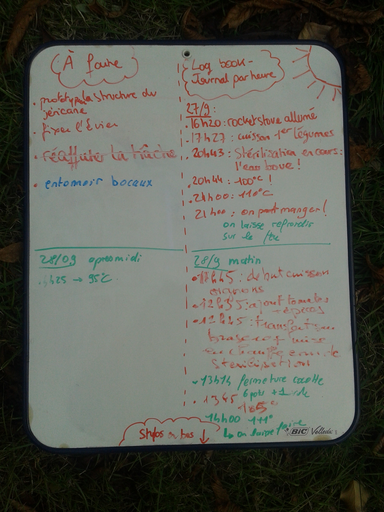 À faire
• prototyper la structure du
jéricane
• fixer l'évier
• réaffuter la hache
• entonnoir bocaux
28/09 apres midi
→ 95°C
Log book -
Journal par heure
27/9 :
• 16h20 : rocket stove allumé
• 17h27 : cuisson 1er légumes
• 20h43 : Stérilisation en cours :
l'eau boue !
• 20h44 : 100°C !
• 21h00 : 110°C
21h00 : on peut manger !
on laisse refroidir
sur le feu
28/9 matin
• 11h45 : début cuisson
oignons
• 12h35 : ajout tomates
stérilisation
• 13h14 fermeture cocotte
6 pots
• 13h45
105°C
14h00 111°
Stylos en bas ↓
BIC Velleda